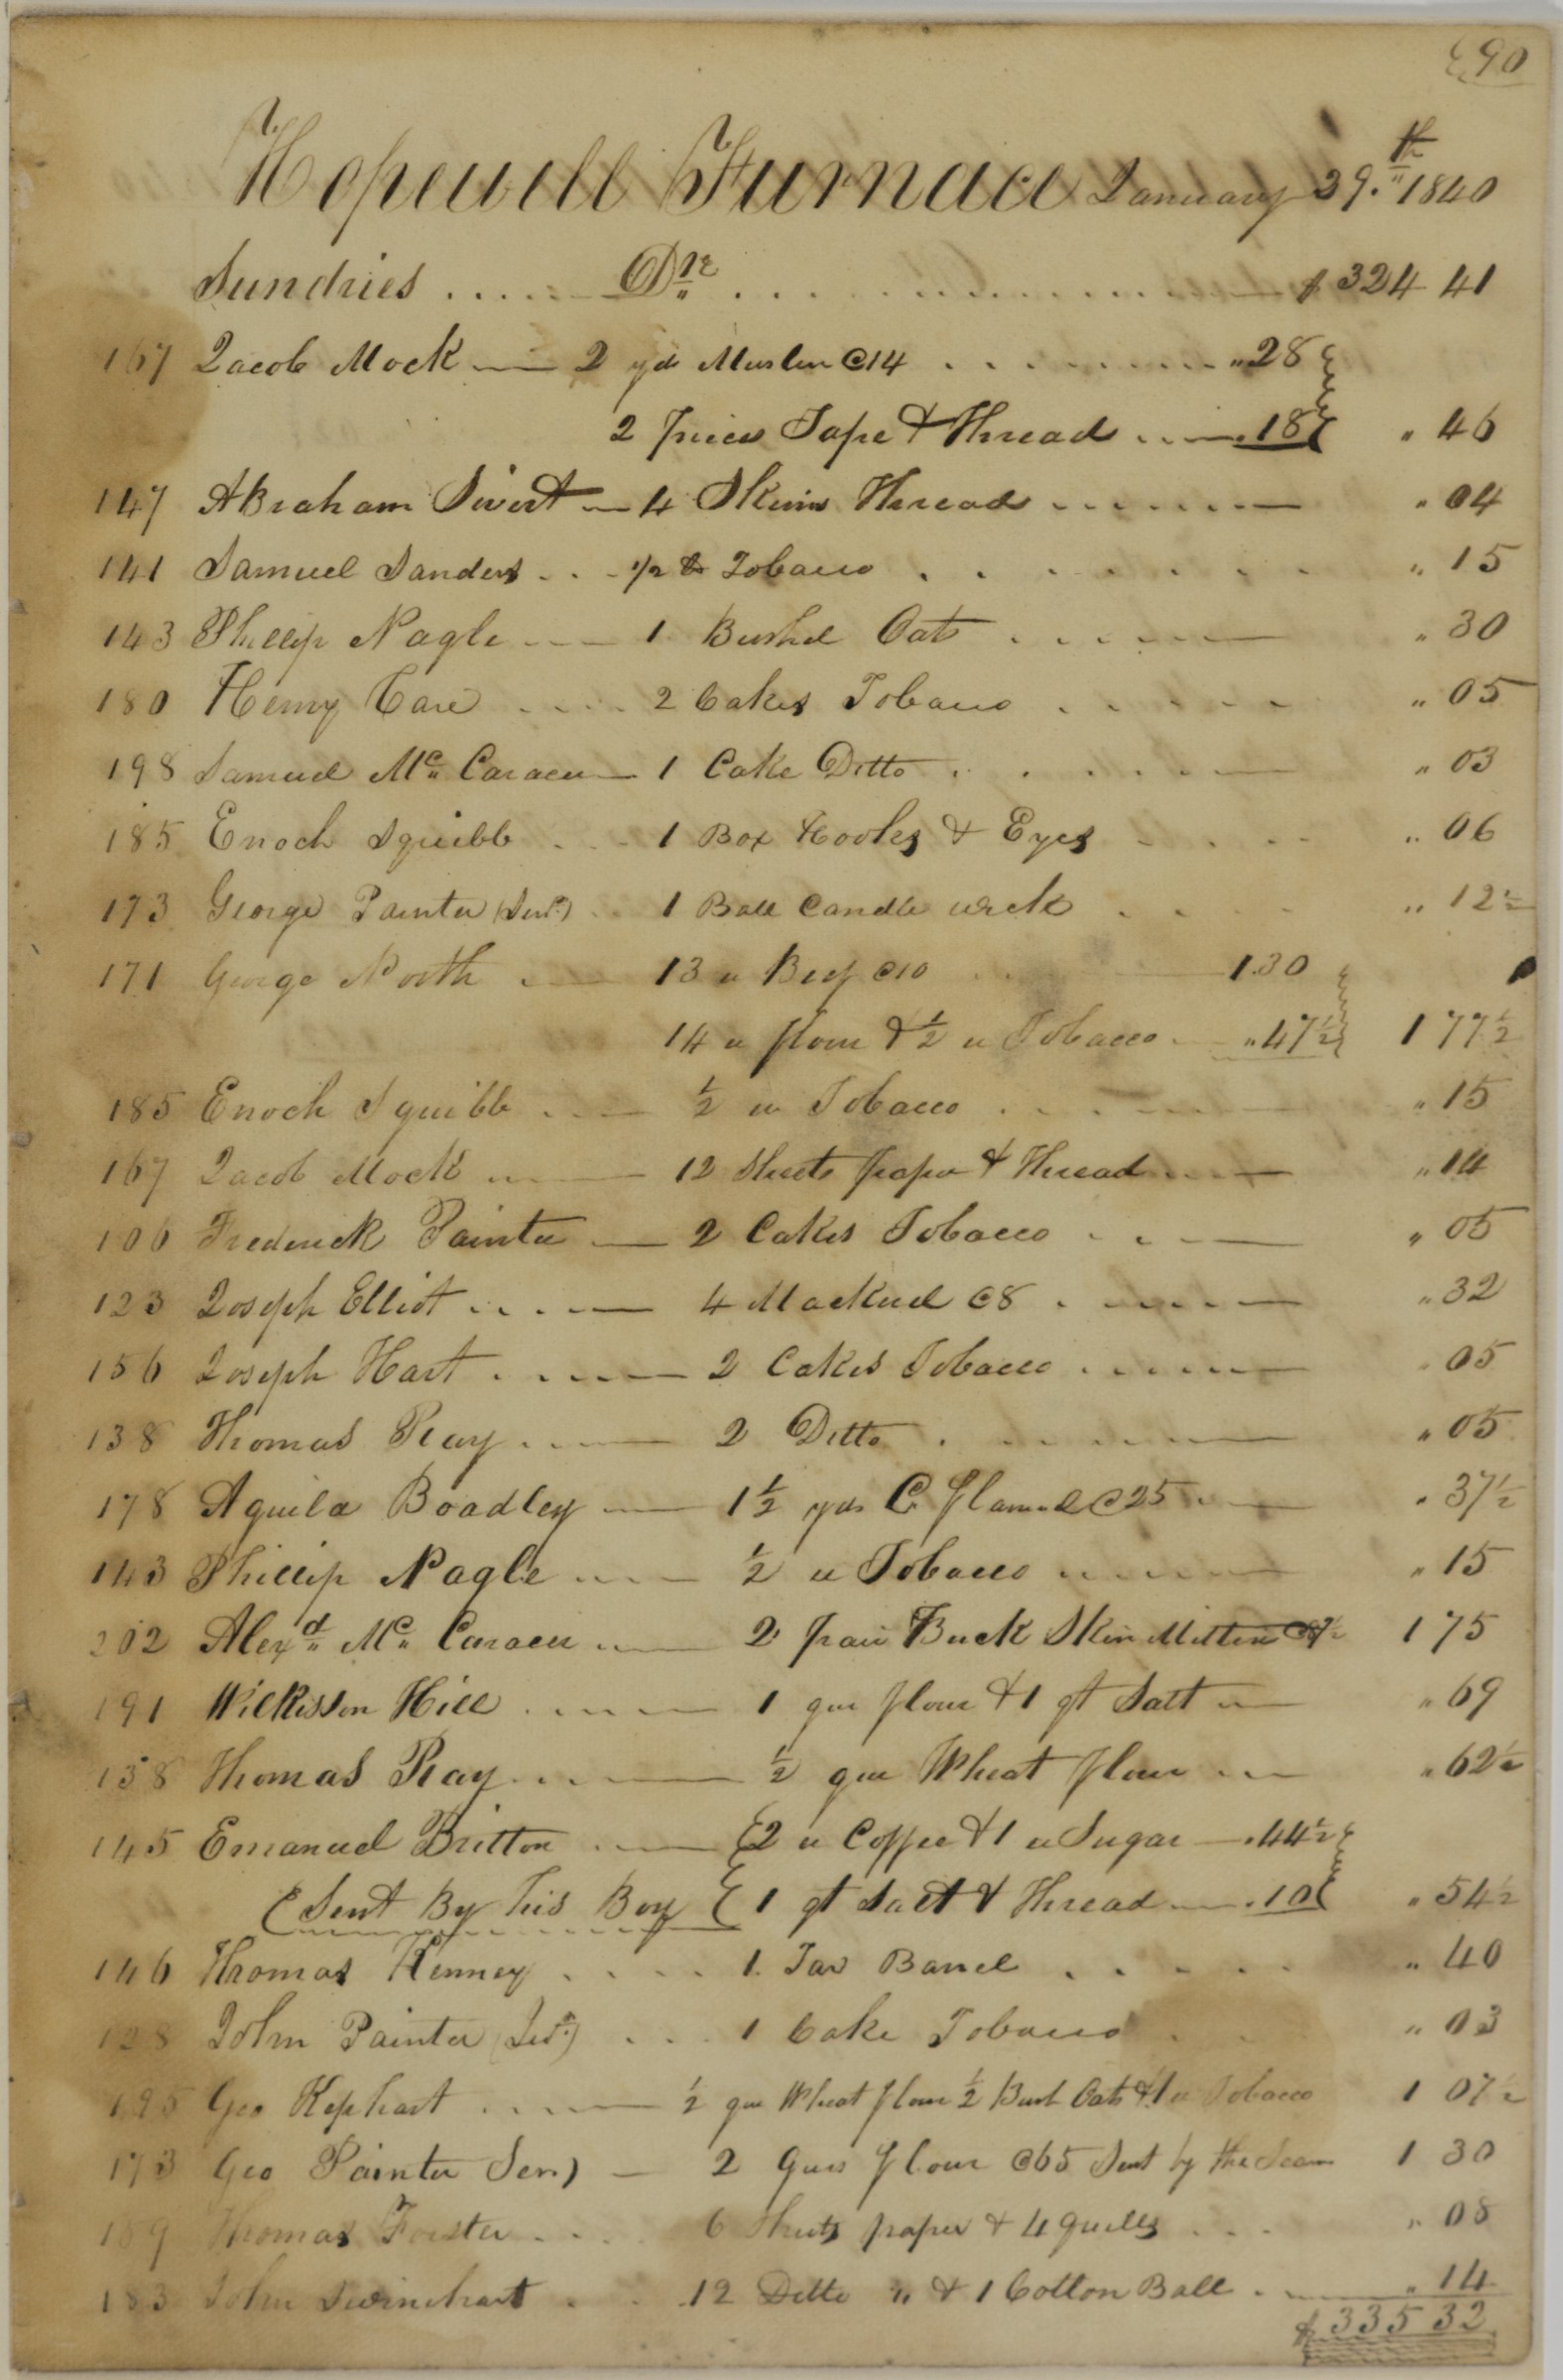 90
Hopewell Furnace January 29.th 1840
Sundries ..... Dr. ..... $ 324 41
167 Jacob Mock — 2 yds Muslin @14 ..... " 28
2 pieces Tape & Thread .... " 18 " 46
147 Abraham Sivert — 4 Skeins Thread ..... " 04
141 Samuel Sanders ... 1/2 lb Tobacco ..... " 15
143 Phillip Nagle — 1 Bushel Oats ..... " 30
180 Henry Care .... 2 Cakes Tobacco ..... " 05
198 Samuel Mc. Caraeu — 1 Cake Ditto ..... " 03
185 Enoch Squibb ... 1 Box Hooks & Eyes ..... " 06
173 George Painter (Senr.) .. 1 Ball Candle wick ..... " 12 1/2
171 George North — 13 " Beef @10 ..... 1.30
14 " flour & 1/2 " Tobacco — " 47 1/2 1 77 1/2
185 Enoch Squibb .... 1/2 " Tobacco ..... " 15
167 Jacob Mock — 12 Sheets paper & Thread .... " 14
106 Frederick Painter — 2 Cakes Tobacco ..... " 05
123 Joseph Elliot .... 4 Mackrel @8 ..... " 32
156 Joseph Hart .... 2 Cakes Tobacco ..... " 05
138 Thomas Reay .... 2 Ditto ..... " 05
178 Aquila Boadley — 1 1/2 yds C. flannel @25 .... " 37 1/2
143 Phillip Nagle .... 1/2 " Tobacco ..... " 15
202 Alexd. Mc. Caraeu .... 2 pair Buck Skin Mittens @87 1/2 1 75
191 Wilkisson Hill ..... 1 qur flour & 1 qt Salt — " 69
138 Thomas Reay ..... 1/2 qur Wheat flour .... " 62 1/2
145 Emanuel Britton .... 2 " Coffee & 1 " Sugar — " 44 1/2
(Sent By his Boy 1 qt Salt & Thread .... " 10 " 54 1/2
146 Thomas Kenney .... 1 Tar Barrel ..... " 40
128 John Painter (Senr.) ... 1 Cake Tobacco ..... " 03
195 Geo Kephart .... 1/2 qur Wheat flour 1/2 Bush Oats & 1 " Tobacco 1 07 1/2
173 Geo Painter Sen.) — 2 Qurs flour @65 Sent by the Team 1 30
189 Thomas Foister ... 6 Sheets paper & 4 quills ... " 08
183 John Swinehart .. 12 Ditto " & 1 Cotton Ball .... " 14
$ 335 32